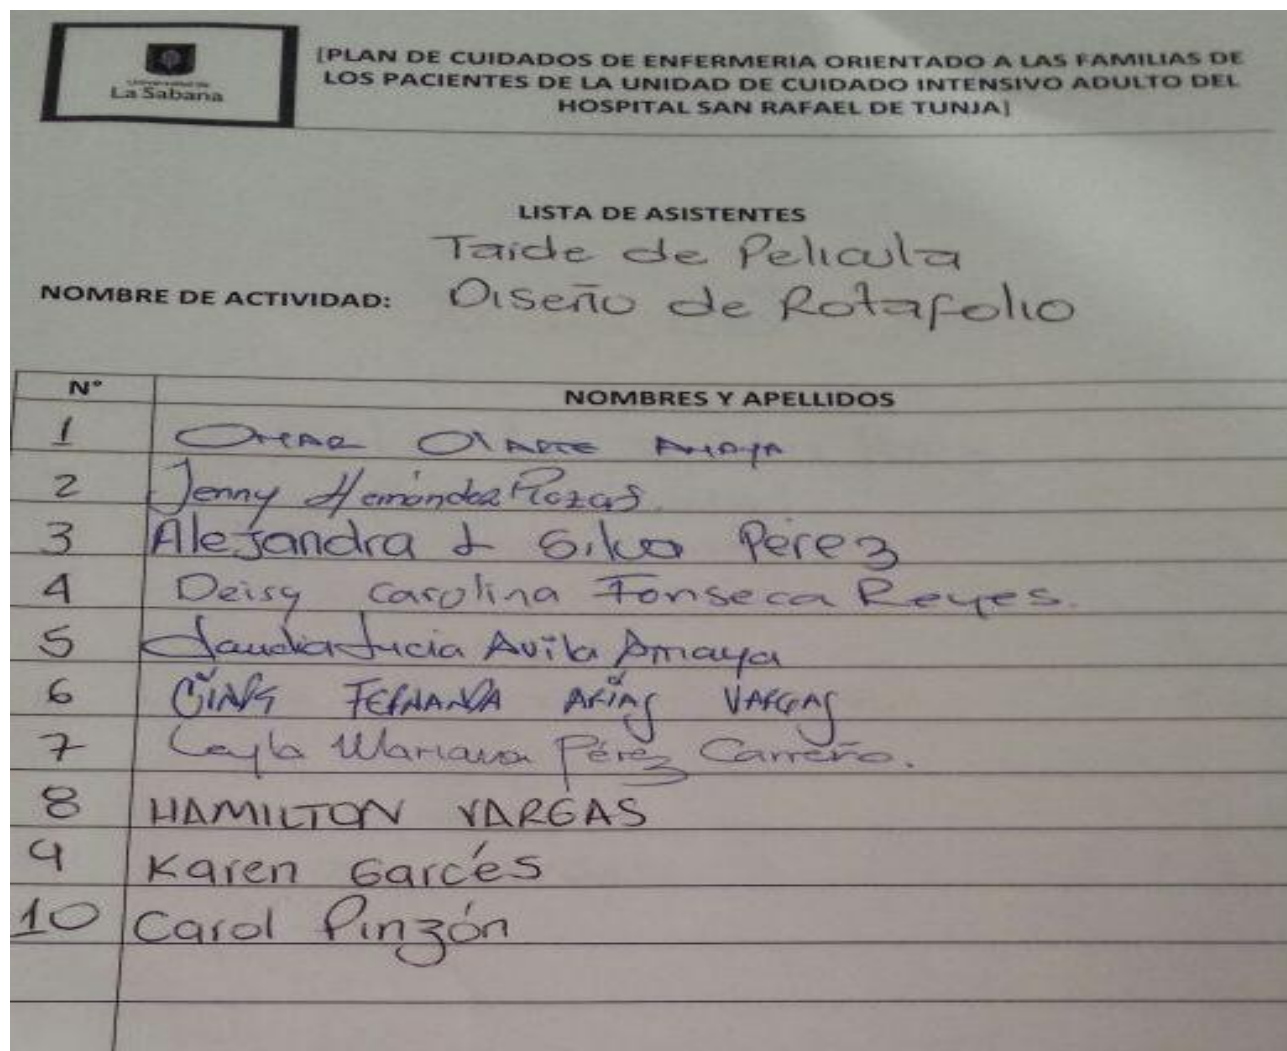 UNIVERSIDAD DE
La Sabana
[PLAN DE CUIDADOS DE ENFERMERIA ORIENTADO A LAS FAMILIAS DE
LOS PACIENTES DE LA UNIDAD DE CUIDADO INTENSIVO ADULTO DEL
HOSPITAL SAN RAFAEL DE TUNJA]
LISTA DE ASISTENTES
Tarde de Pelicula
NOMBRE DE ACTIVIDAD: Diseño de Rotafolio
N° NOMBRES Y APELLIDOS
1 OMAR OLARTE AMAYA
2 Jenny Hernández Rozas
3 Alejandra L Silva Pérez
4 Deisy Carolina Fonseca Reyes.
5 Claudia Lucia Avila Amaya
6 FERNANDA ARIAS VARGAS
7 Leyla Mariana Pérez Carreño.
8 HAMILTON VARGAS
9 Karen Garcés
10 Carol Pinzón